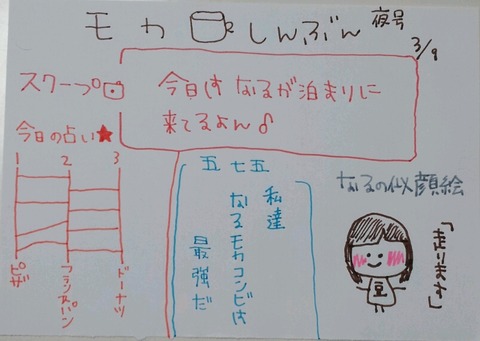 モカしんぶん 夜号
3/9
スクープ
今日はなるが泊まりに
来てるよん♂
今日の占い★
1 2 3
ピザ
フランスパン
ドーナツ
五七五
私達
なるモカコンビは
最強だ
なるの似顔絵
「走ります」
豆